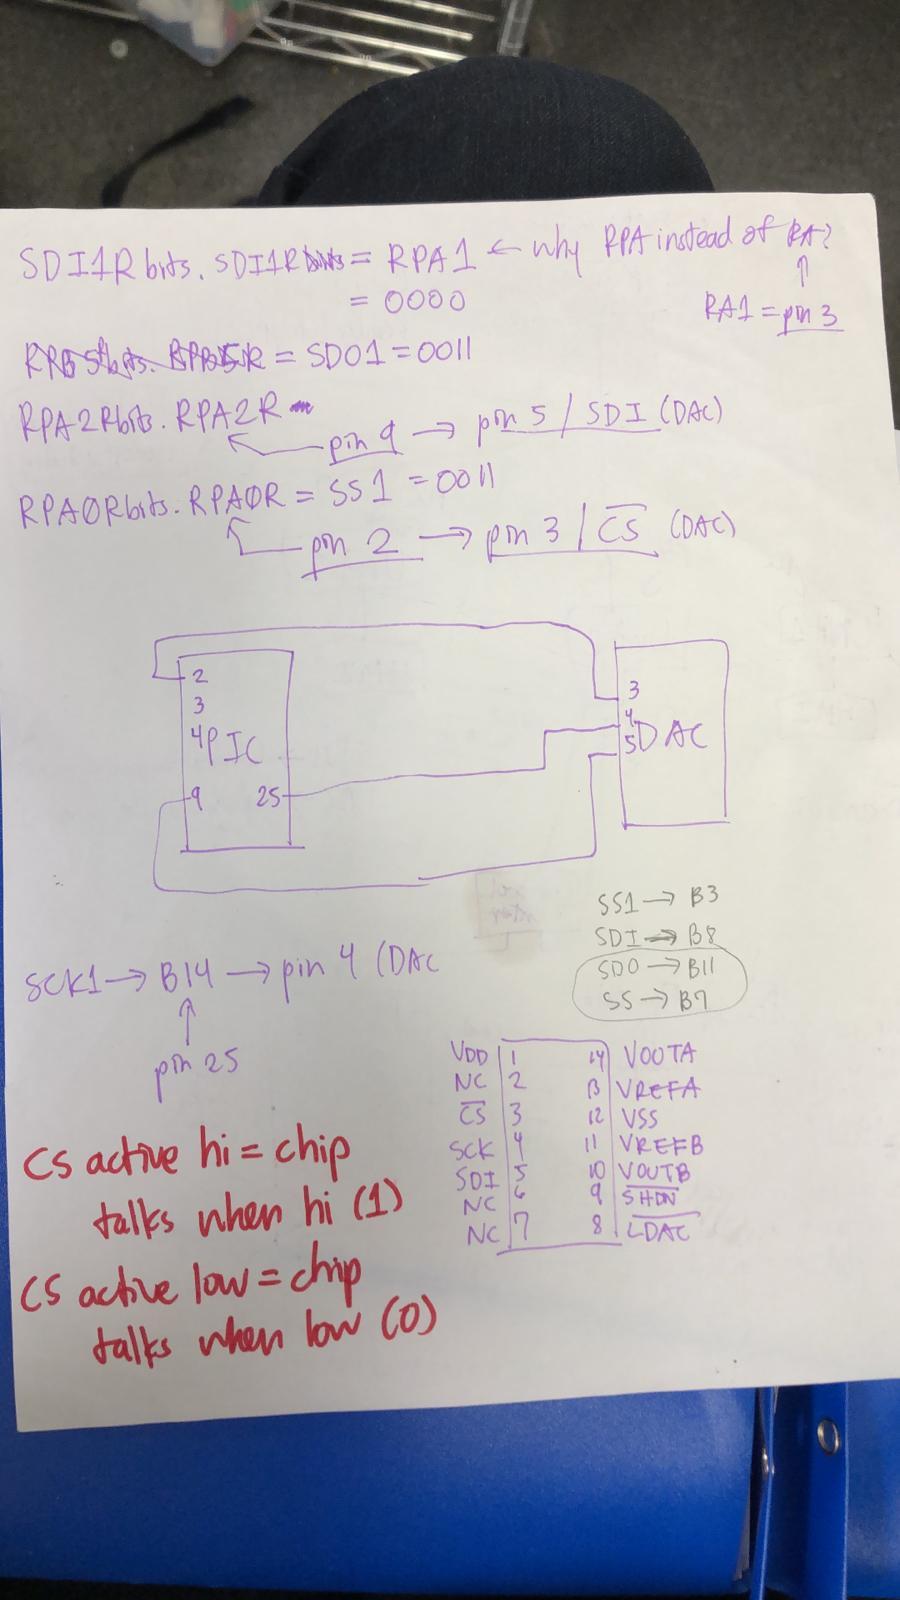 SDI1Rbits.SDI1R = RPA1 ← why RPA instead of RA?
= 0000
RA1 = pin 3
= SDO1 = 0011
RPA2Rbits.RPA2R
pin 9 → pin 5 / SDI (DAC)
RPA0Rbits.RPA0R = SS1 = 0011
pin 2 → pin 3 / CS (DAC)
2
3
4 PIC
9 25
3
4
5 DAC
SS1 → B3
SDI → B8
SDO → B11
SS → B7
SCK1 → B14 → pin 4 (DAC
pin 25
VDD 1 14 VOUTA
NC 2 13 VREFA
CS 3 12 VSS
SCK 4 11 VREFB
SDI 5 10 VOUTB
NC 6 9 SHDN
NC 7 8 LDAC
CS active hi = chip
talks when hi (1)
CS active low = chip
talks when low (0)